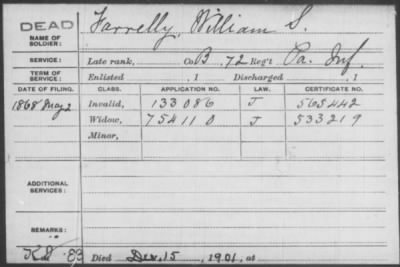 DEAD
NAME OF SOLDIER: Farrelly, William S.
SERVICE: Late rank, Co. B. 72 Reg't Pa. Inf.
TERM OF SERVICE: Enlisted , 1 Discharged , 1
DATE OF FILING. CLASS. APPLICATION NO. LAW. CERTIFICATE NO.
1868 May 2 Invalid, 133086 J 565442
Widow, 754110 J 533219
Minor,
ADDITIONAL SERVICES:
REMARKS:
Died Dec. 15, 1901, at